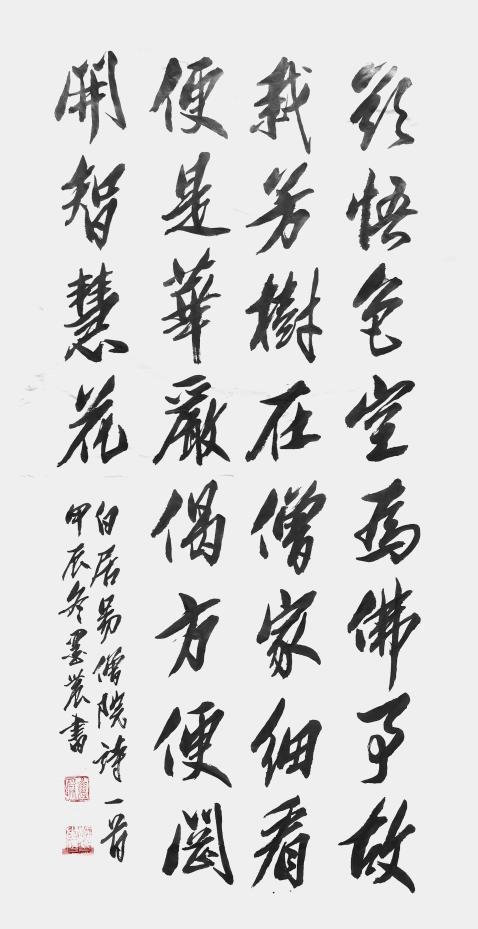 欲悟色空為佛事故
栽芳樹在僧家細看
便是華嚴偈方便風
開智慧花
白居易僧院詩一首
甲辰冬墨農書